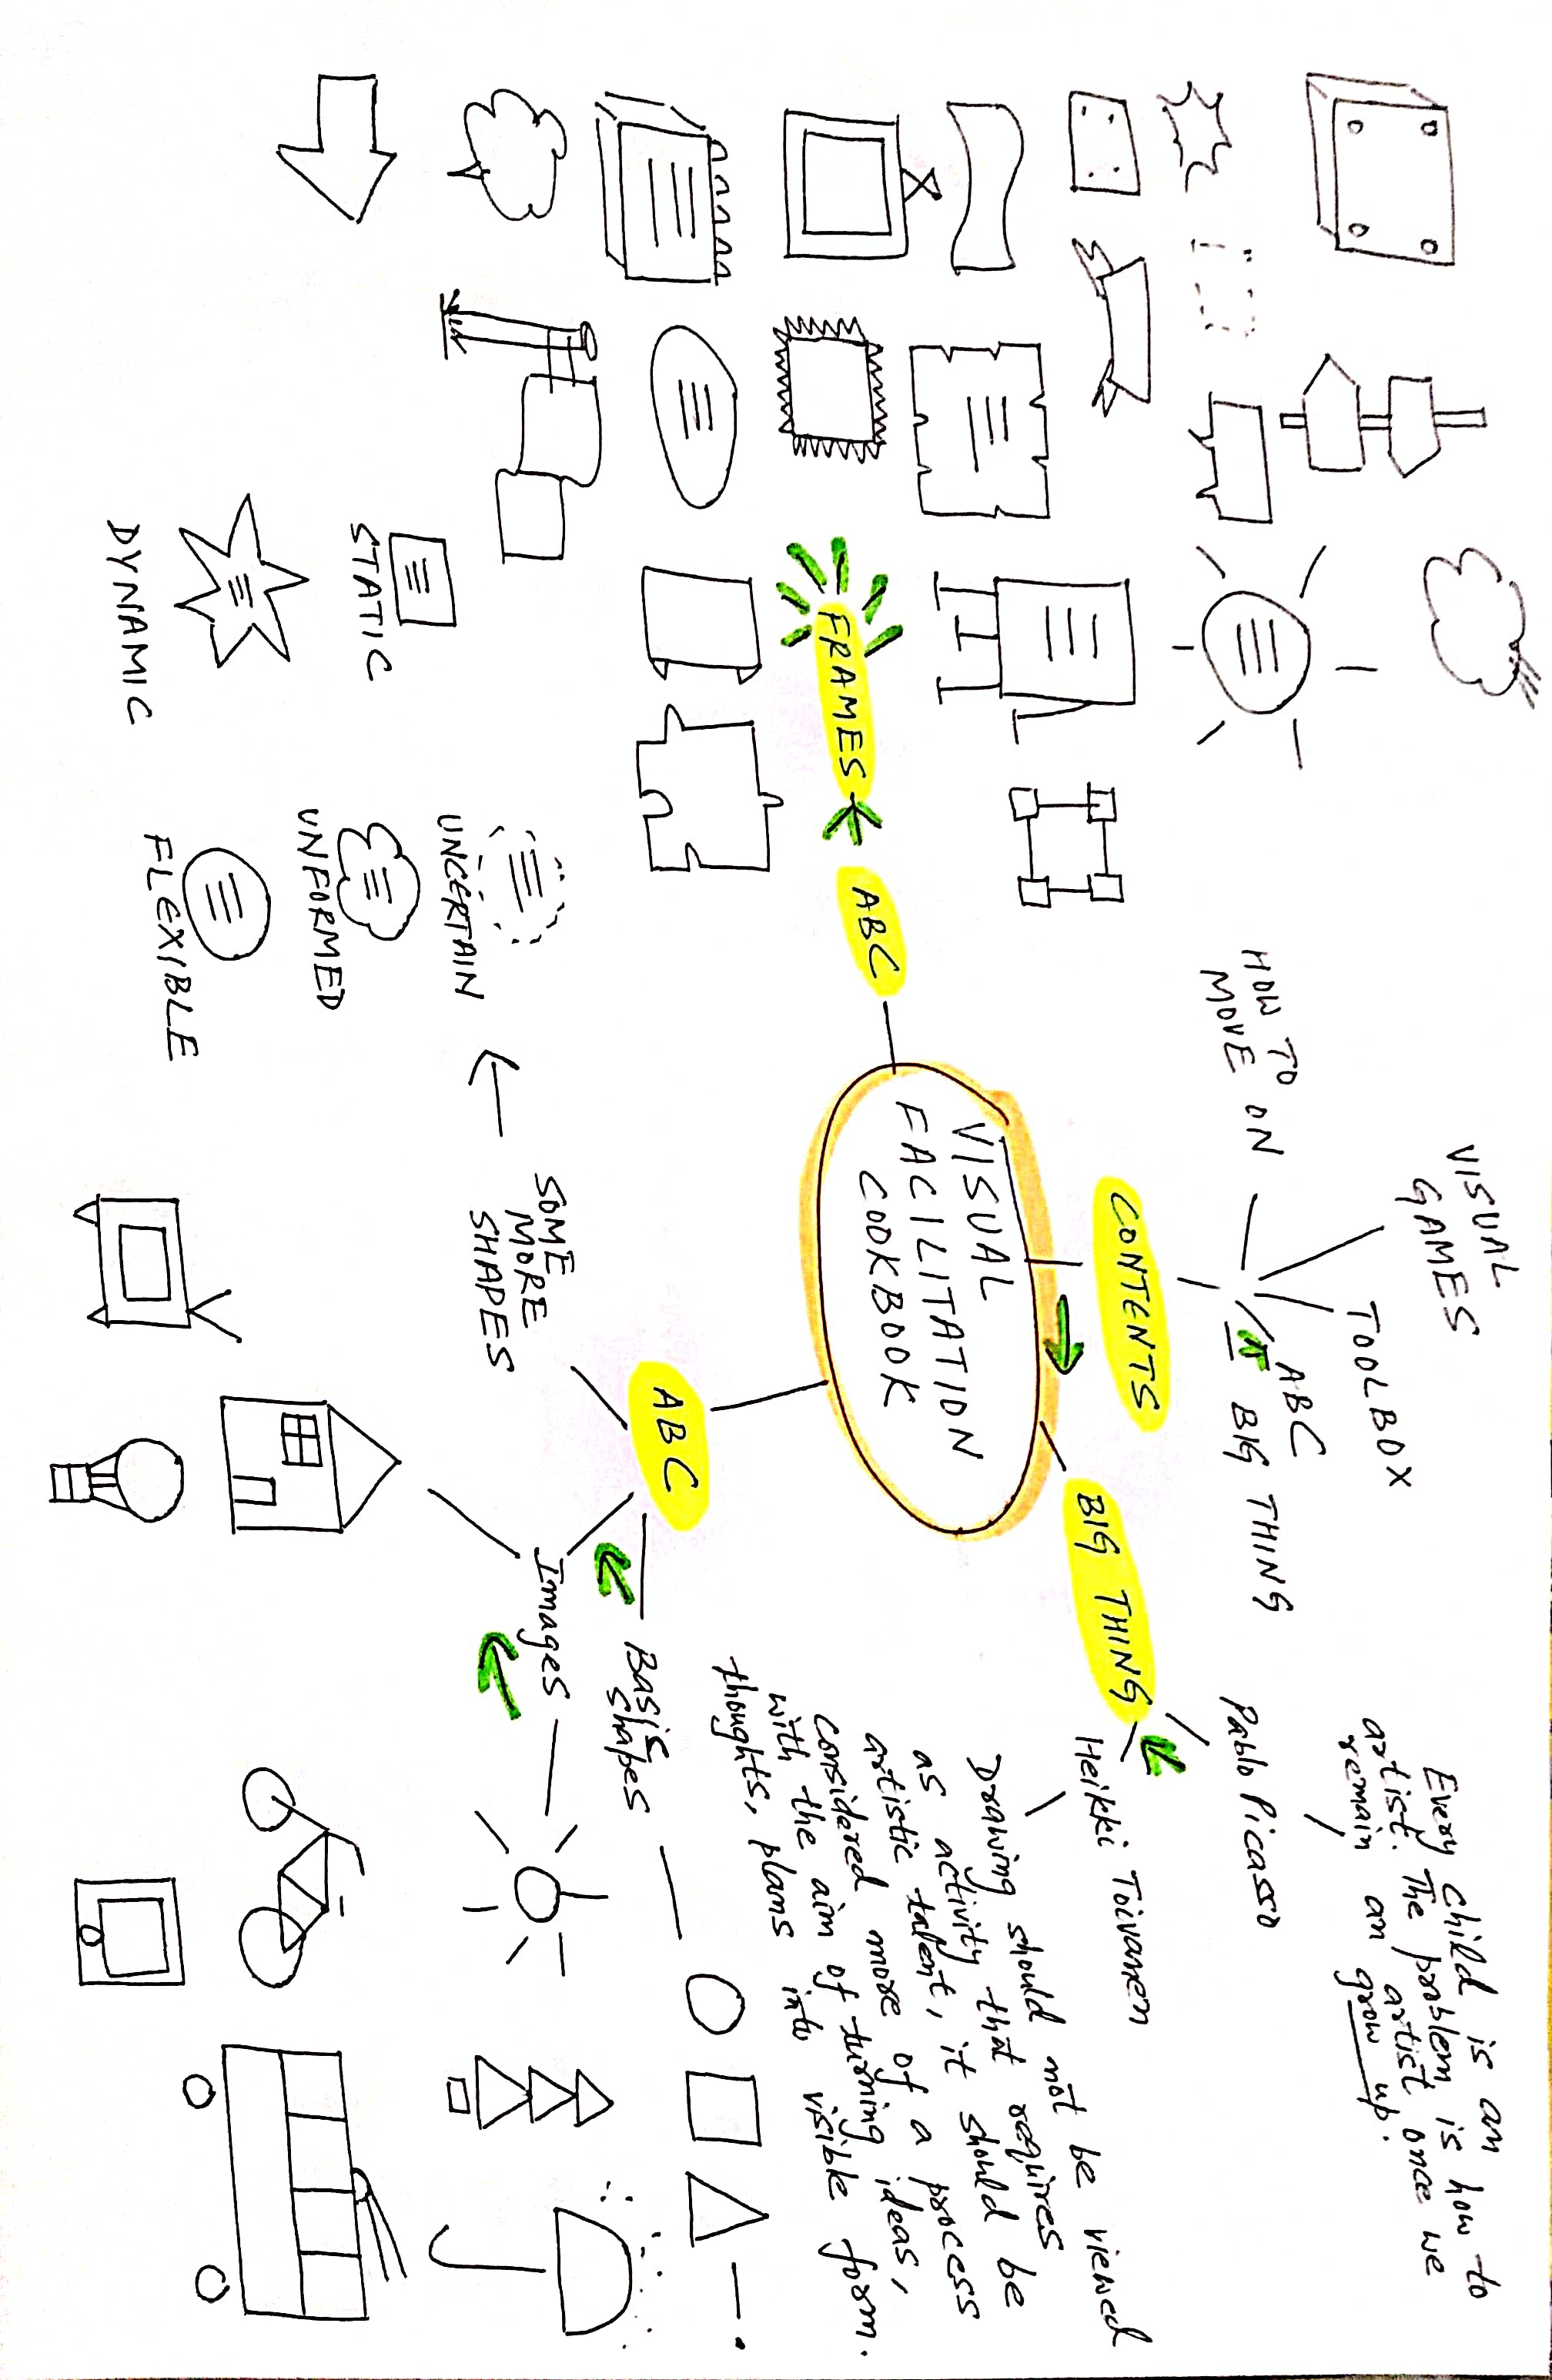 VISUAL
FACILITATION
COOKBOOK
CONTENTS
BIG THING
ABC
TOOLBOX
VISUAL
GAMES
HOW TO
MOVE ON
BIG THING
Pablo Picasso
Every child is an
artist. The problem is how to
remain an artist once we
grow up.
Heikki Toivanen
Drawing should not be viewed
as activity that requires
artistic talent, it should be
considered more of a process
with the aim of turning ideas,
thoughts, plans into visible form.
ABC
Basic
shapes
Images
SOME
MORE
SHAPES
UNCERTAIN
UNFORMED
FLEXIBLE
STATIC
DYNAMIC
ABC
FRAMES